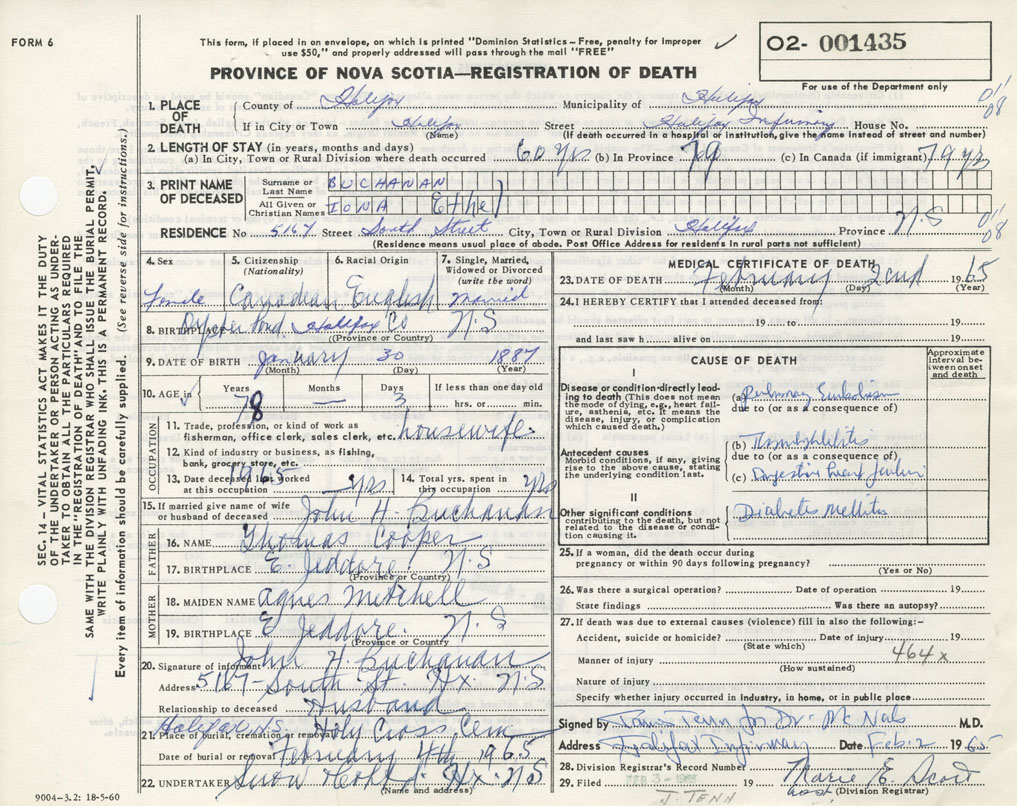 FORM 6
This form, if placed in an envelope, on which is printed "Dominion Statistics – Free, penalty for improper
use $50," and properly addressed will pass through the mail "FREE"
PROVINCE OF NOVA SCOTIA—REGISTRATION OF DEATH
02- 001435
For use of the Department only
SEC. 14 – VITAL STATISTICS ACT MAKES IT THE DUTY
OF THE UNDERTAKER OR PERSON ACTING AS UNDER-
TAKER TO OBTAIN ALL THE PARTICULARS REQUIRED
IN THE "REGISTRATION OF DEATH" AND TO FILE THE
SAME WITH THE DIVISION REGISTRAR WHO SHALL ISSUE THE BURIAL PERMIT.
WRITE PLAINLY WITH UNFADING INK. THIS IS A PERMANENT RECORD.
Every item of information should be carefully supplied. (See reverse side for instructions.)
1. PLACE OF DEATH
County of Halifax Municipality of Halifax
If in City or Town Halifax Street Halifax Infirmary House No.
(Name) (If death occurred in a hospital or institution, give the name instead of street and number)
01'
08
2. LENGTH OF STAY (in years, months and days)
(a) In City, Town or Rural Division where death occurred 60 yrs (b) In Province 79 (c) In Canada (if immigrant) 79 yrs
3. PRINT NAME OF DECEASED
Surname or Last Name BUCHANAN
All Given or Christian Names IONA Ethel
RESIDENCE No 5167 Street South Street City, Town or Rural Division Halifax Province N.S
(Residence means usual place of abode. Post Office Address for residents in rural parts not sufficient)
01'
08
4. Sex Female
5. Citizenship (Nationality) Canadian
6. Racial Origin English
7. Single, Married, Widowed or Divorced (write the word) Married
8. BIRTHPLACE Oyster Pond Halifax Co N.S
(Province or Country)
9. DATE OF BIRTH January 30 1887
(Month) (Day) (Year)
10. AGE in Years 78 Months — Days 3 If less than one day old hrs. or min.
OCCUPATION
11. Trade, profession, or kind of work as
fisherman, office clerk, sales clerk, etc. housewife
12. Kind of industry or business, as fishing,
bank, grocery store, etc.
13. Date deceased last worked at this occupation 1965 yrs
14. Total yrs. spent in this occupation yrs
15. If married give name of wife or husband of deceased John H. Buchanan
FATHER
16. NAME Thomas Cooper
17. BIRTHPLACE E. Jeddore N.S
(Province or Country)
MOTHER
18. MAIDEN NAME Agnes Mitchell
19. BIRTHPLACE E Jeddore. N.S
(Province or Country)
20. Signature of informant John H. Buchanan
Address 5167 - South St. Hx. N.S
Relationship to deceased Husband
21. Place of burial, cremation or removal Halifax N.S. Holy Cross Cem
Date of burial or removal February 4th 1965
22. UNDERTAKER Snow Hx. N.S
(Name and address)
9004–3.2: 18-5-60
MEDICAL CERTIFICATE OF DEATH
23. DATE OF DEATH February 2nd 1965
(Month) (Day) (Year)
24. I HEREBY CERTIFY that I attended deceased from:
19 to 19
and last saw h alive on 19
CAUSE OF DEATH
Approximate interval between onset and death
I
Disease or condition directly leading to death (This does not mean the mode of dying, e.g., heart failure, asthenia, etc. It means the disease, injury, or complication which caused death.)
(a) Pulmonary Embolism
due to (or as a consequence of)
Antecedent causes
Morbid conditions, if any, giving rise to the above cause, stating the underlying condition last.
(b) Thrombophlebitis
due to (or as a consequence of)
(c) Congestive heart failure
II
Other significant conditions
contributing to the death, but not related to the disease or condition causing it.
Diabetes Mellitis
25. If a woman, did the death occur during
pregnancy or within 90 days following pregnancy?
(Yes or No)
26. Was there a surgical operation? Date of operation 19
State findings Was there an autopsy?
27. If death was due to external causes (violence) fill in also the following:–
Accident, suicide or homicide? Date of injury 19
(State which)
464x
Manner of injury
(How sustained)
Nature of injury
Specify whether injury occurred in industry, in home, or in public place
Signed by Tenn for Dr. M.D.
Address Halifax Infirmary Date Feb. 2 1965
28. Division Registrar's Record Number
29. Filed FEB 3 - 1965 19 Marie E. Scott
(Division Registrar)
J. TENN